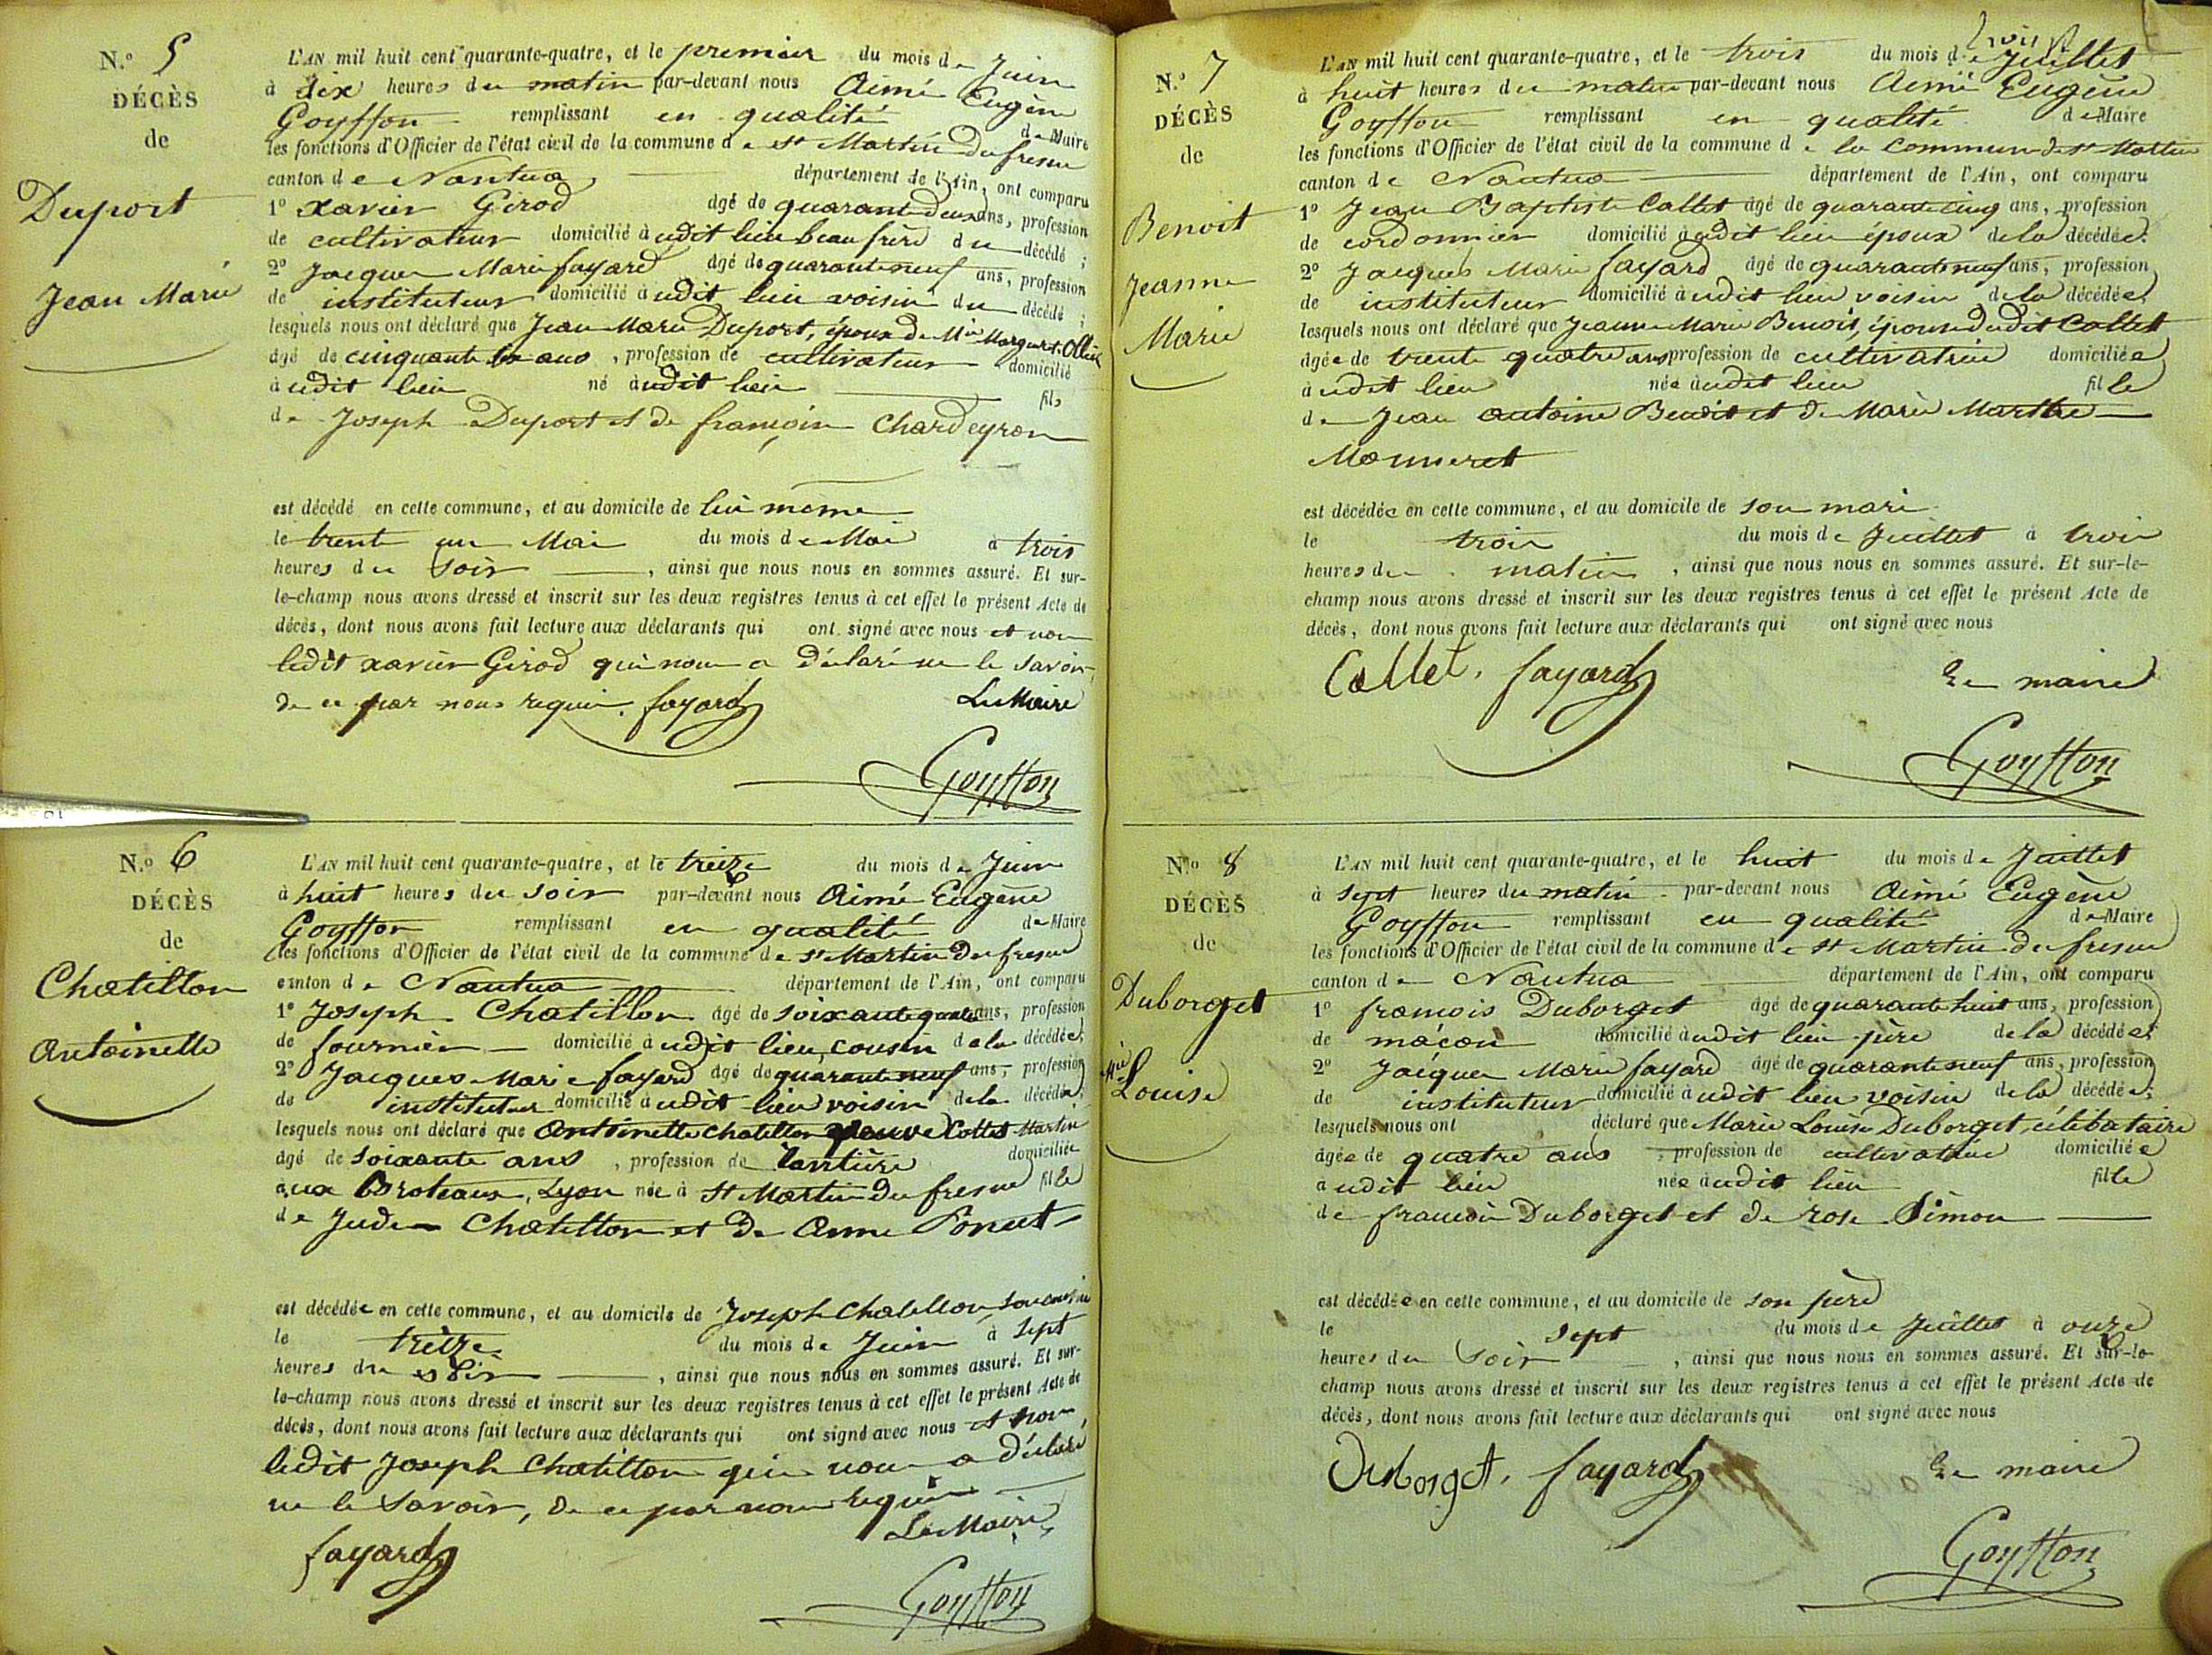 N.o 5
DÉCÈS
de
Duport
Jean Marie
L'AN mil huit cent quarante-quatre, et le premier du mois de Juin
à dix heures du matin par-devant nous Aimé Eugène
Goyffon remplissant en qualité de Maire
les fonctions d'Officier de l'état civil de la commune de St Martin Du fresne
canton de Nantua département de l'Ain, ont comparu
1o xavier Girod âgé de quarante deux ans, profession
de cultivateur domicilié à udit lieu beau frère du décédé ;
2o Jacques Marie fayard âgé de quarante neuf ans, profession
de instituteur domicilié à udit lieu voisin du décédé ;
lesquels nous ont déclaré que Jean Marie Duport, époux de Mie Margueritte
âgé de cinquante ans, profession de cultivateur domicilié
à udit lieu né àudit lieu fils
de Joseph Duport et de françoise Chardeyron
est décédé en cette commune, et au domicile de lui même
le trente un Mai du mois de Mai à trois
heures du Soir, ainsi que nous nous en sommes assuré. Et sur-
le-champ nous avons dressé et inscrit sur les deux registres tenus à cet effet le présent Acte de
décès, dont nous avons fait lecture aux déclarants qui ont signé avec nous et non
ledit xavier Girod qui nous a déclaré ne le savoir,
de ce par nous requis. fayard Le Maire
Goyffon
N.o 6
DÉCÈS
de
Chatillon
Antoinette
L'AN mil huit cent quarante-quatre, et le treize du mois de Juin
à huit heures du soir par-devant nous Aimé Eugène
Goyffon remplissant en qualité de Maire
les fonctions d'Officier de l'état civil de la commune de St Martin Du fresne
canton de Nantua département de l'Ain, ont comparu
1o Joseph Chatillon âgé de soixante quatre ans, profession
de fournier domicilié à udit lieu, cousin de la décédée ;
2o Jacques Marie fayard âgé de quarante neuf ans, profession
de instituteur domicilié à udit lieu voisin de la décédée ;
lesquels nous ont déclaré que Antoinette Chatillon veuve Collet Martin
âgé de soixante ans, profession de rentière domiciliée
aux Broteaux, Lyon née à St Martin Du fresne fille
de Jude Chatillon et de Anne Poncet
est décédée en cette commune, et au domicile de Joseph Chatillon, son cousin
le treize du mois de Juin à Sept
heures du soir, ainsi que nous nous en sommes assuré. Et sur-
le-champ nous avons dressé et inscrit sur les deux registres tenus à cet effet le présent Acte de
décès, dont nous avons fait lecture aux déclarants qui ont signé avec nous et non
ledit Joseph Chatillon qui nous a déclaré
ne le savoir, de ce par nous requis
Le Maire
fayard
Goyffon
N.o 7
DÉCÈS
de
Benoit
Jeanne
Marie
trois
L'AN mil huit cent quarante-quatre, et le trois du mois de Juillet
à huit heures du matin par-devant nous Aimé Eugène
Goyffon remplissant en qualité de Maire
les fonctions d'Officier de l'état civil de la commune de la Commune de St Martin
canton de Nantua département de l'Ain, ont comparu
1o Jean Baptiste Collet âgé de quarante cinq ans, profession
de cordonnier domicilié à udit lieu époux de la décédée ;
2o Jacques Marie fayard âgé de quarante neuf ans, profession
de instituteur domicilié à udit lieu voisin de la décédée ;
lesquels nous ont déclaré que Jeanne Marie Benoit, épouse dudit Collet
âgée de trente quatre ans profession de cultivatrice domiciliée
à udit lieu née àudit lieu fille
de Jean Antoine Benoit et de Marie Marthe
Monneret
est décédée en cette commune, et au domicile de son mari
le trois du mois de Juillet à trois
heures du matin, ainsi que nous nous en sommes assuré. Et sur-le-
champ nous avons dressé et inscrit sur les deux registres tenus à cet effet le présent Acte de
décès, dont nous avons fait lecture aux déclarants qui ont signé avec nous
Collet. fayard Le maire
Goyffon
N.o 8
DÉCÈS
de
Duborget
Mie
Louise
L'AN mil huit cent quarante-quatre, et le huit du mois de Juillet
à sept heures du matin par-devant nous Aimé Eugène
Goyffon remplissant en qualité de Maire
les fonctions d'Officier de l'état civil de la commune de St Martin du fresne
canton de Nantua département de l'Ain, ont comparu
1o françois Duborget âgé de quarante huit ans, profession
de maçon domicilié àudit lieu père de la décédée ;
2o Jacques Marie fayard âgé de quarante neuf ans, profession
de instituteur domicilié à udit lieu voisin de la décédée ;
lesquels nous ont déclaré que Marie Louise Duborget, célibataire
âgée de quatre ans, profession de cultivatrice domiciliée
à udit lieu née àudit lieu fille
de françois Duborget et de rose Simon
est décédée en cette commune, et au domicile de son père
le sept du mois de Juillet à onze
heures du Soir, ainsi que nous nous en sommes assuré. Et sur-le-
champ nous avons dressé et inscrit sur les deux registres tenus à cet effet le présent Acte de
décès, dont nous avons fait lecture aux déclarants qui ont signé avec nous
Duborget. fayard Le maire
Goyffon